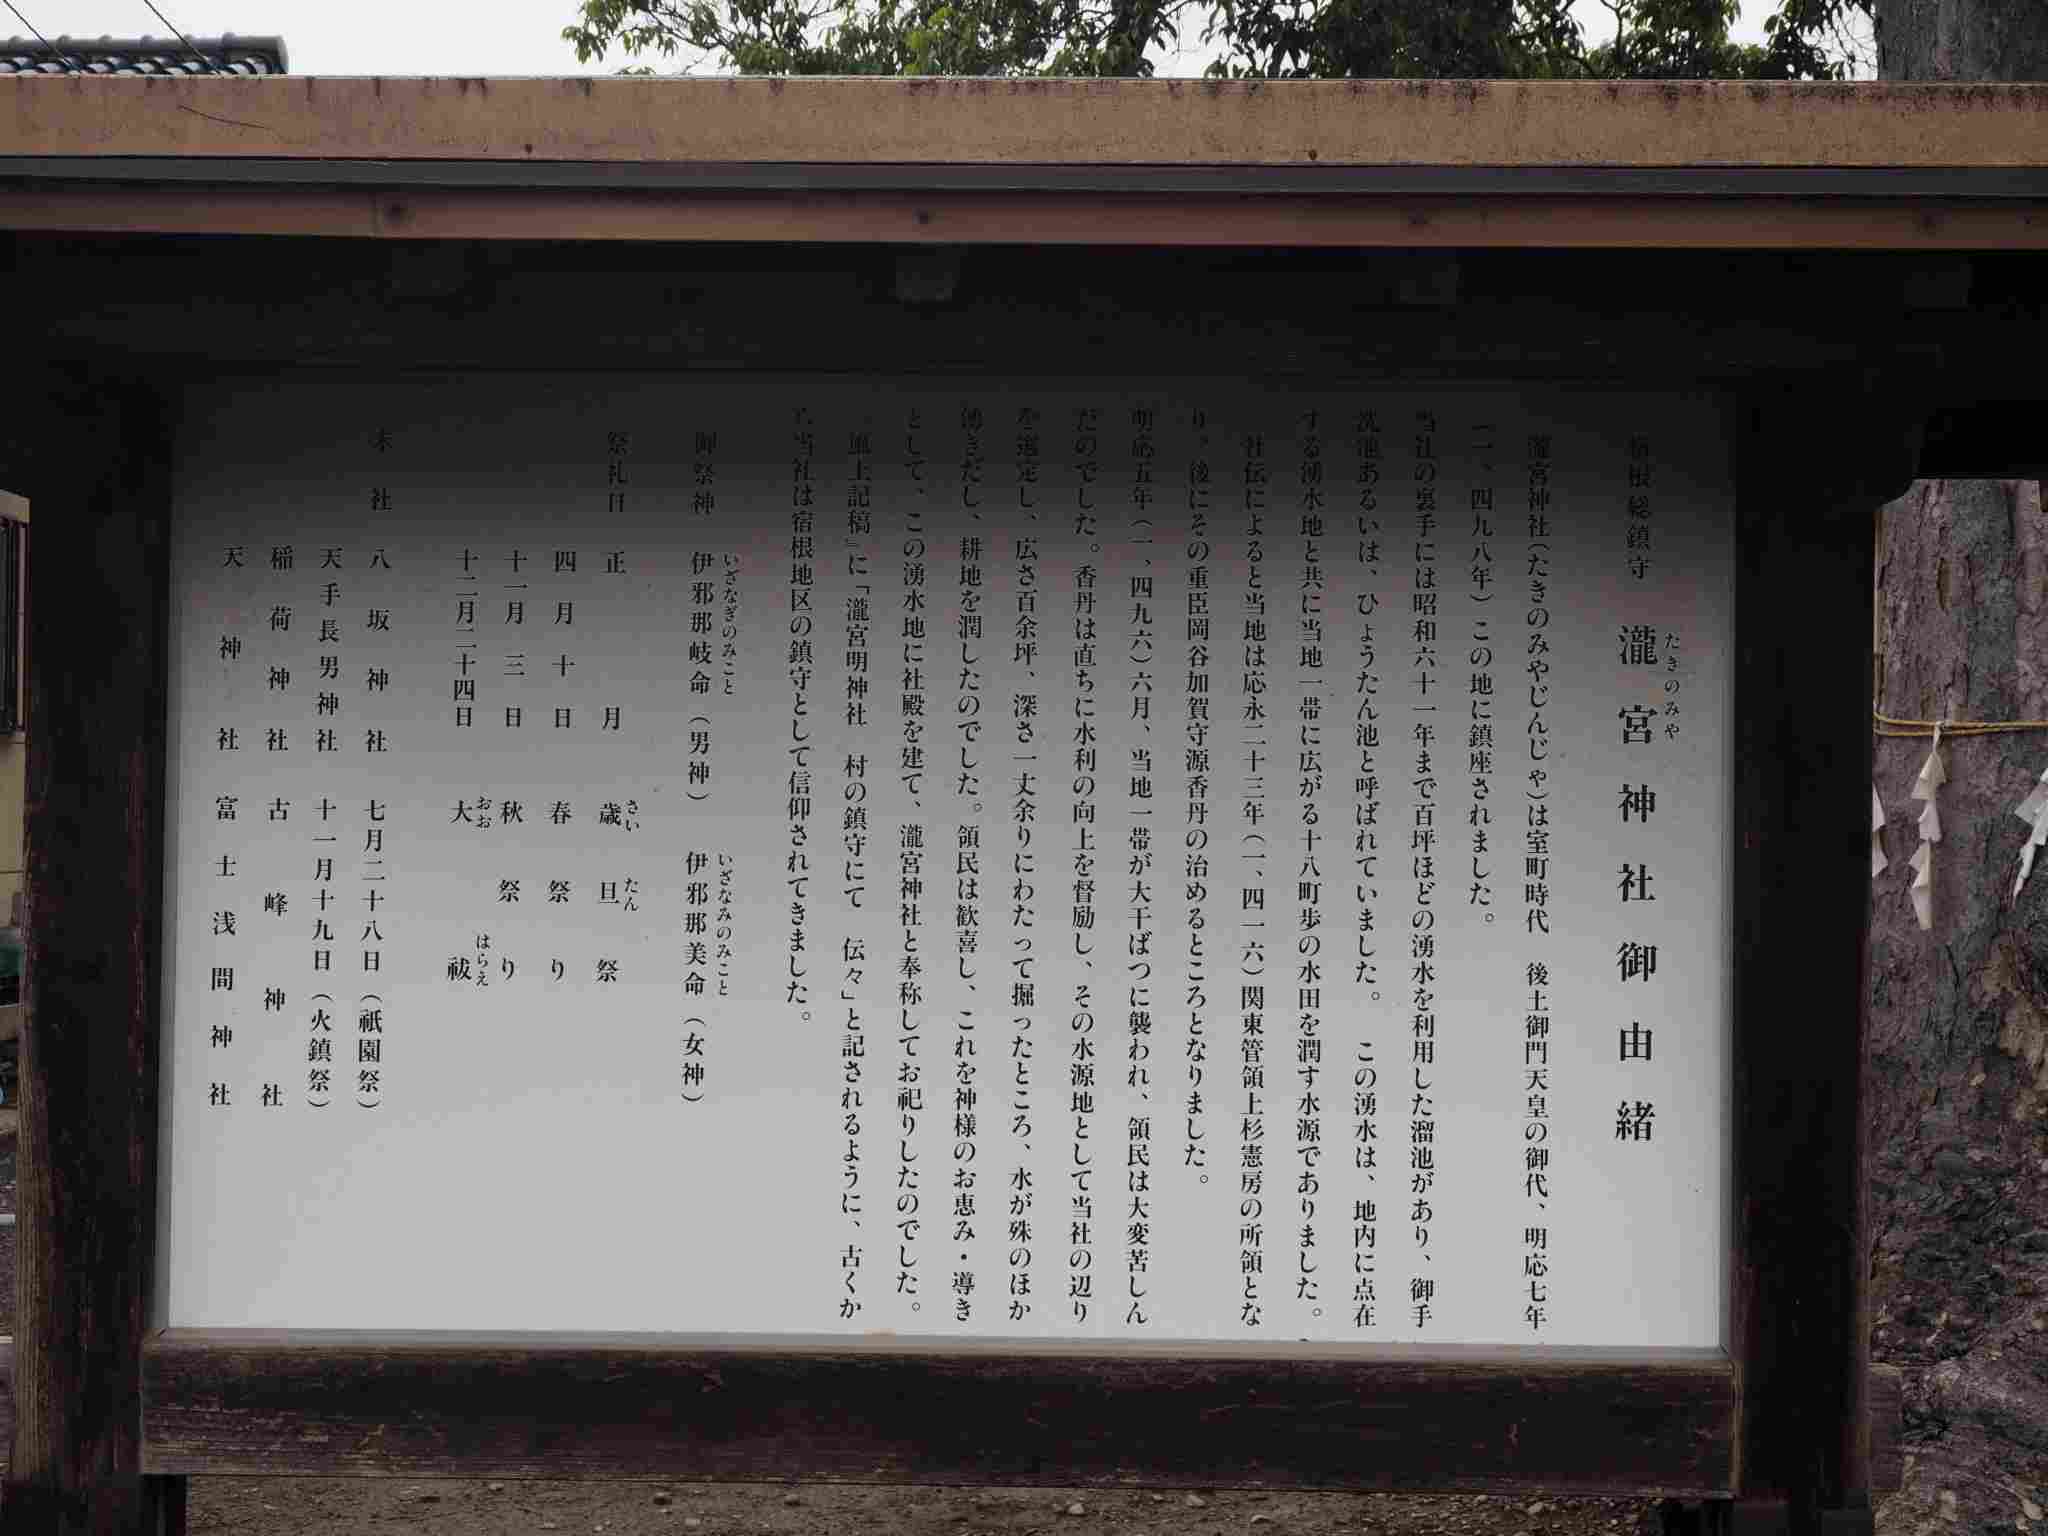 宿根総鎮守　瀧宮神社御由緒
たきのみや
瀧宮神社(たきのみやじんじゃ)は室町時代　後土御門天皇の御代、明応七年
(一、四九八年)この地に鎮座されました。
当社の裏手には昭和六十一年まで百坪ほどの湧水を利用した溜池があり、御手
洗池あるいは、ひょうたん池と呼ばれていました。　この湧水は、地内に点在
する湧水地と共に当地一帯に広がる十八町歩の水田を潤す水源でありました。
社伝によると当地は応永二十三年(一、四一六)関東管領上杉憲房の所領とな
り、後にその重臣岡谷加賀守源香丹の治めるところとなりました。
明応五年(一、四九六)六月、当地一帯が大干ばつに襲われ、領民は大変苦しん
だのでした。香丹は直ちに水利の向上を督励し、その水源地として当社の辺り
を選定し、広さ百余坪、深さ一丈余りにわたって掘ったところ、水が殊のほか
湧きだし、耕地を潤したのでした。領民は歓喜し、これを神様のお恵み・導き
として、この湧水地に社殿を建て、瀧宮神社と奉称してお祀りしたのでした。
風土記稿』に「瀧宮明神社　村の鎮守にて　伝々」と記されるように、古くか
ら当社は宿根地区の鎮守として信仰されてきました。
御祭神　伊邪那岐命(男神)　伊邪那美命(女神)
いざなぎのみこと　いざなみのみこと
祭礼日　正月　歳旦祭
さいたん
四月十日　春祭り
十一月三日　秋祭り
十二月二十四日　大祓
おおはらえ
末社　八坂神社　七月二十八日(祇園祭)
天手長男神社　十一月十九日(火鎮祭)
稲荷神社　古峰神社
天神社　富士浅間神社